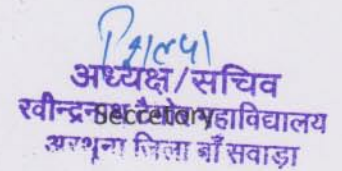 अध्यक्ष/सचिव
रवीन्द्रनाथ टैगोर महाविद्यालय
Secretary
अरथूना जिला बाँसवाड़ा